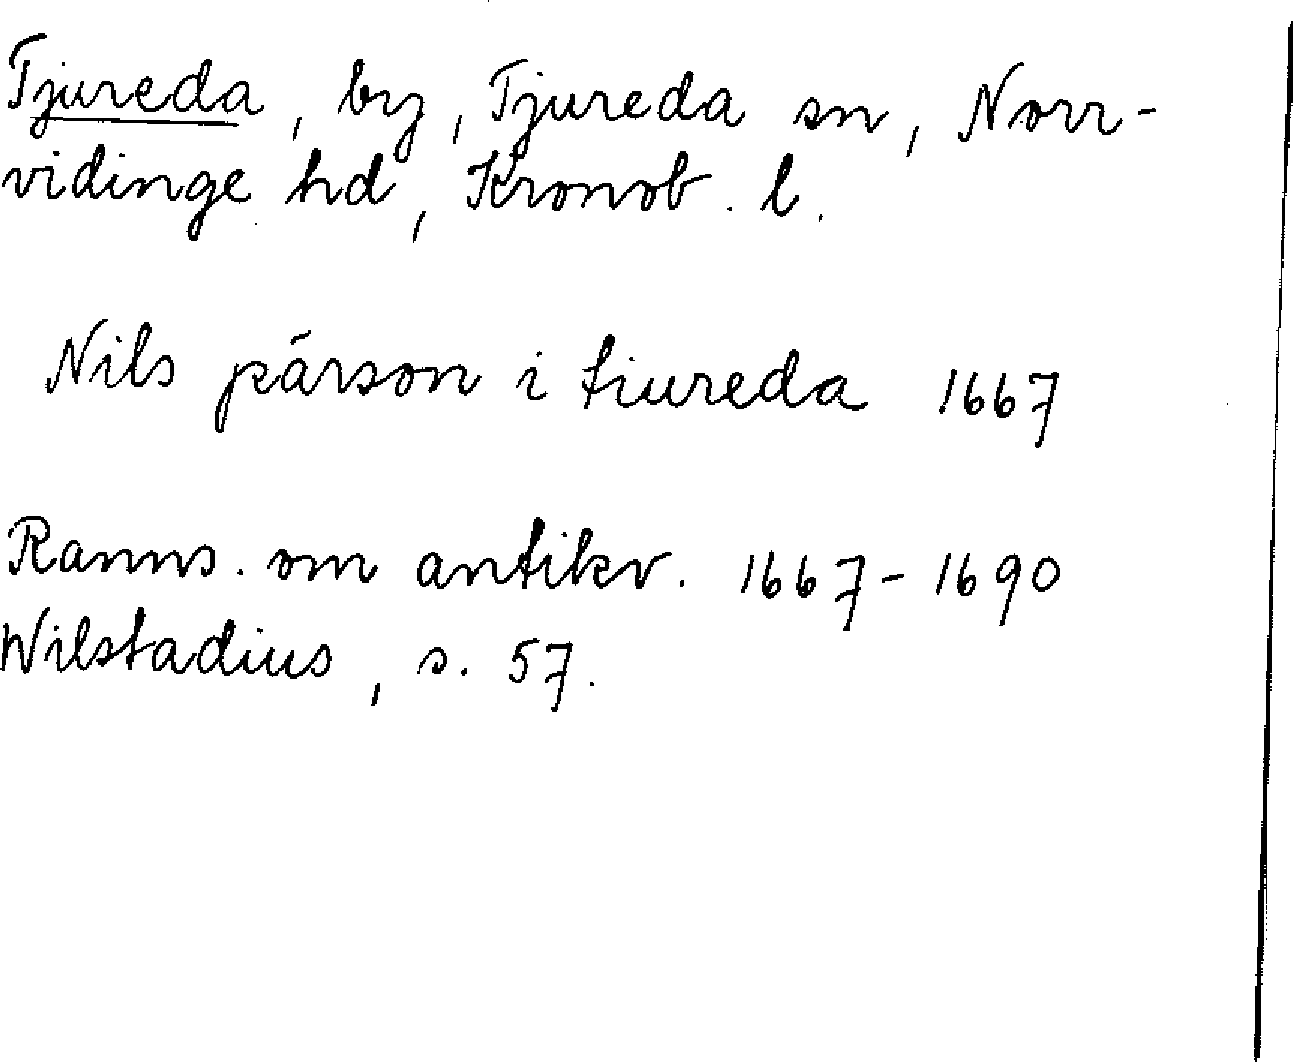 Tjureda, by, Tjureda sn, Norr-
vidinge hd, Kronob. l.
Nils párson i tiureda 1667
Ranns. om antikv. 1667-1690
Wilstadius, s. 57.